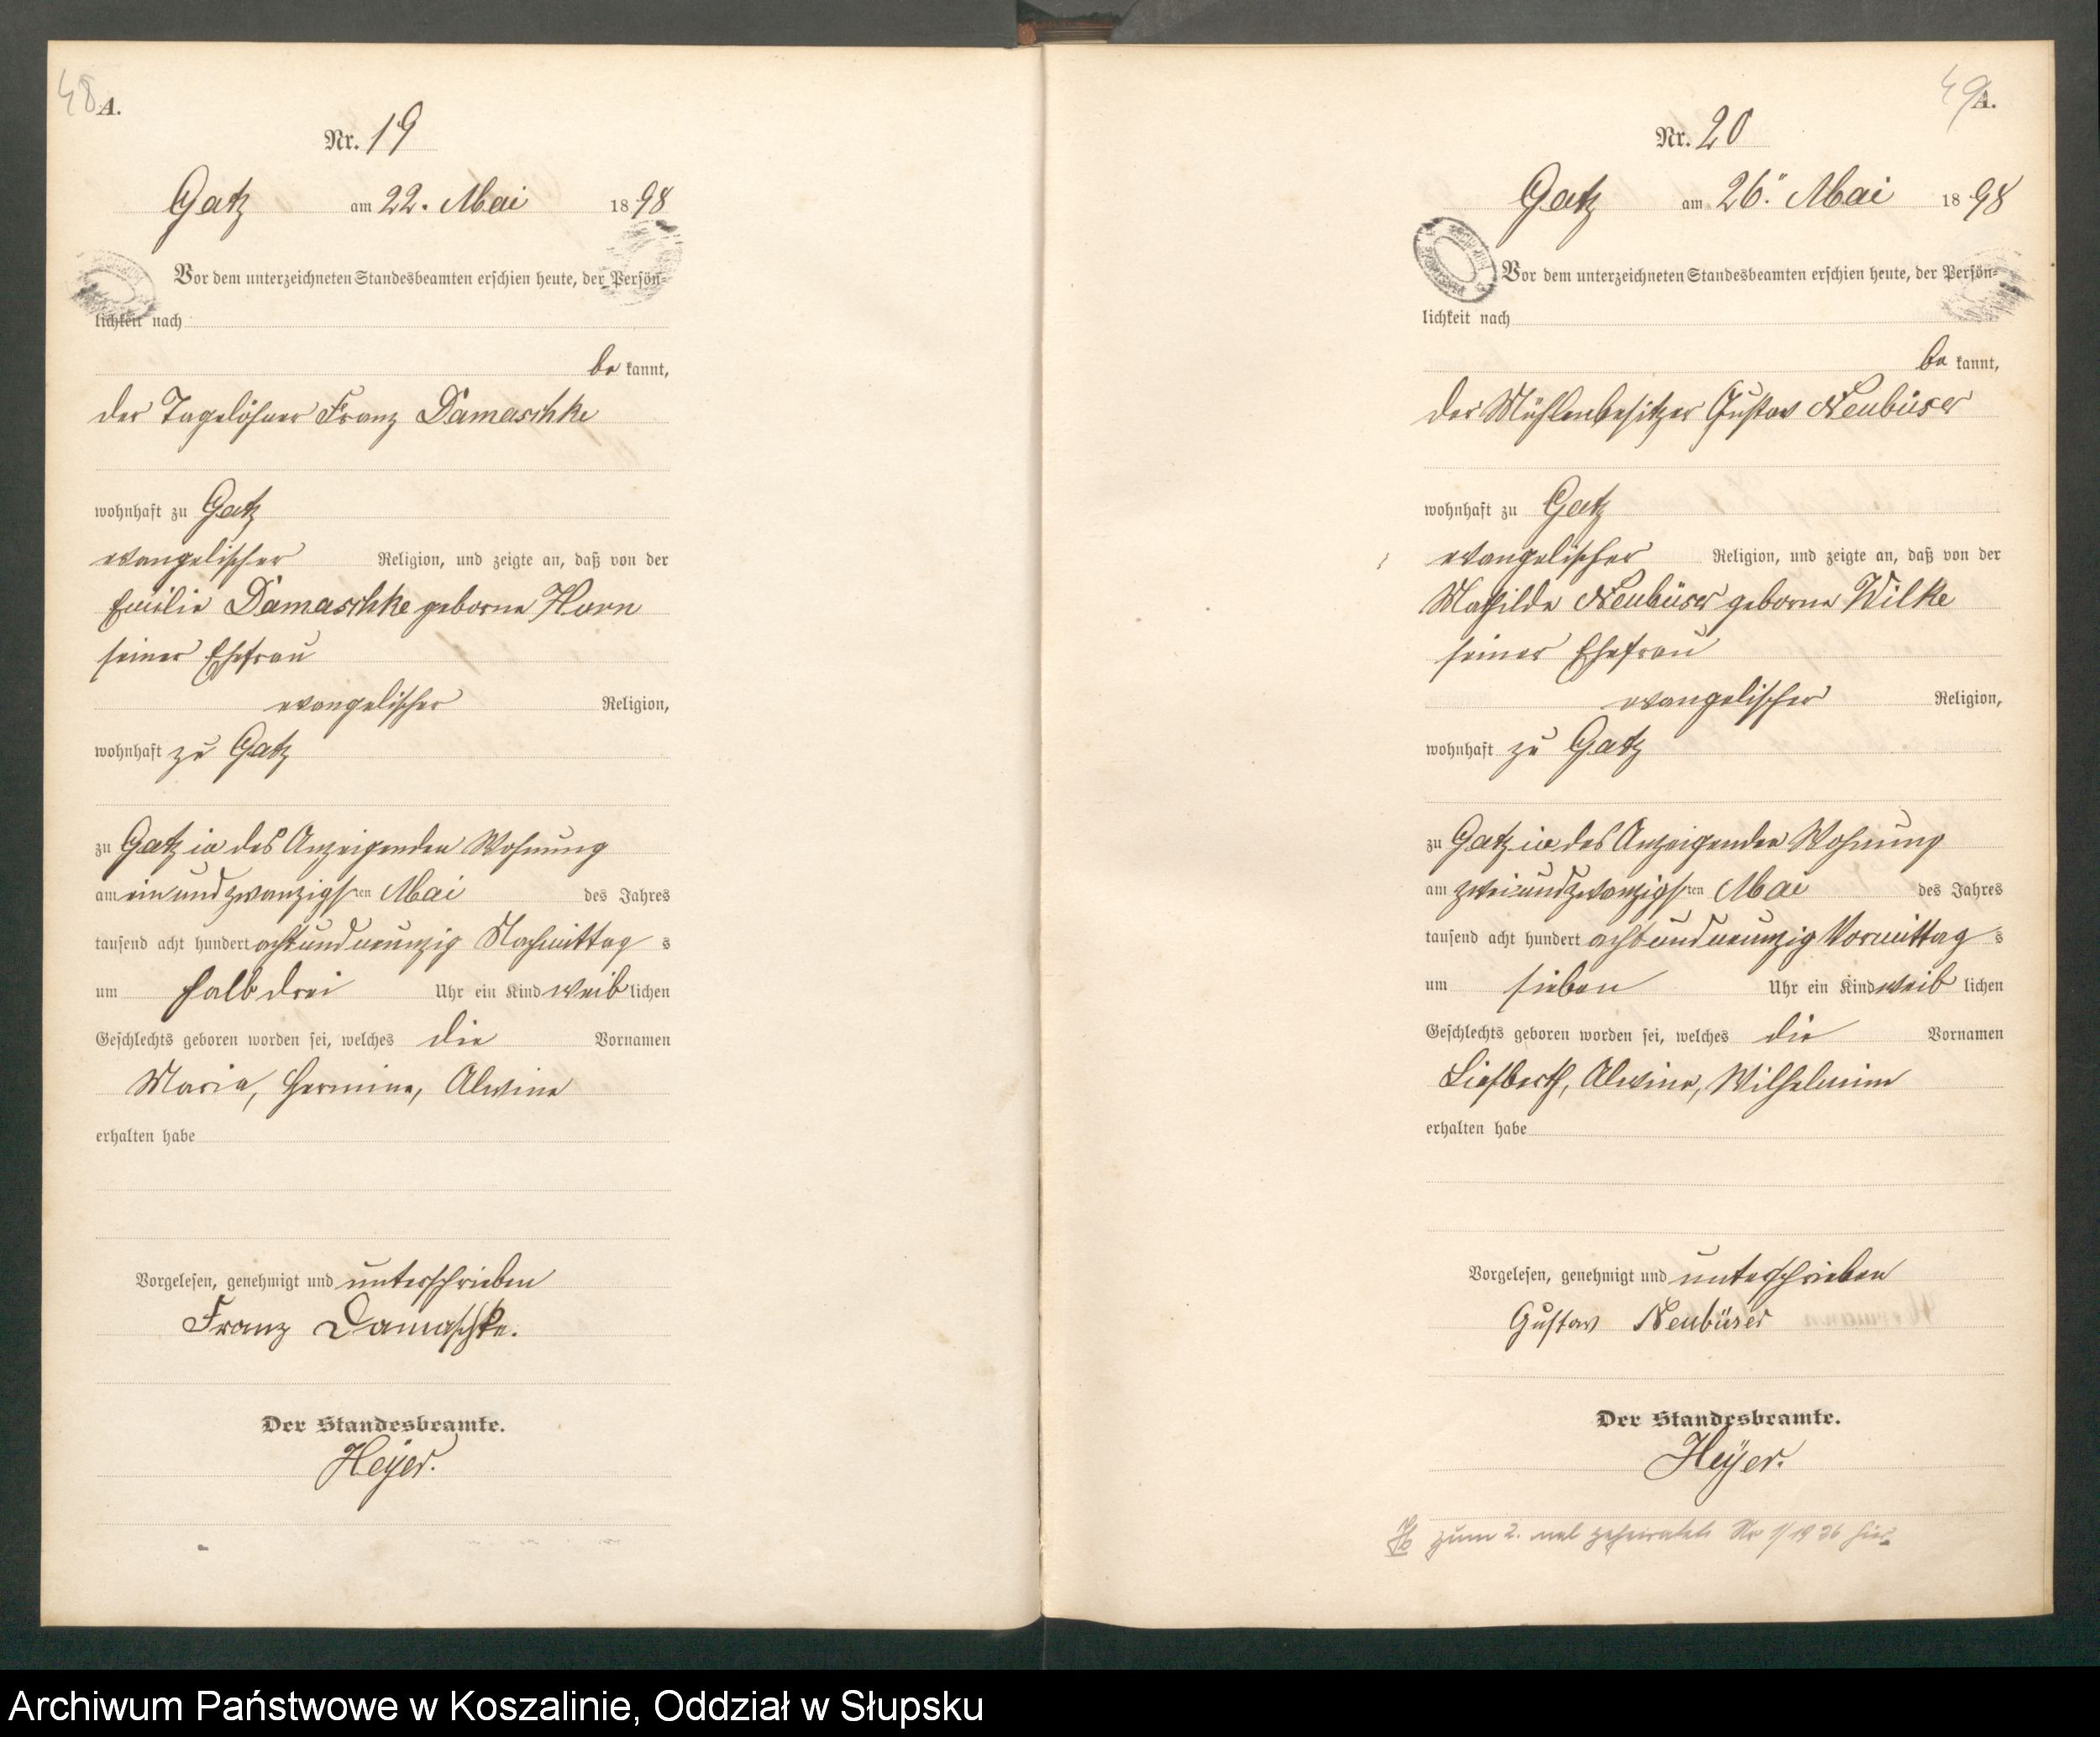 48 A.
Nr. 19
Gatz am 22. Mai 1898
Vor dem unterzeichneten Standesbeamten erschien heute, der Persön-
lichkeit nach
be kannt,
der Tagelöhner Franz Damaschke
wohnhaft zu Gatz
evangelischer Religion, und zeigte an, daß von der
Emilie Damaschke geborne Horn
seiner Ehefrau
evangelischer Religion,
wohnhaft zu Gatz
zu Gatz in des Anzeigenden Wohnung
am einundzwanzigsten Mai des Jahres
tausend acht hundert achtundneunzig Nachmittag s
um halb drei Uhr ein Kind weiblichen
Geschlechts geboren worden sei, welches die Vornamen
Maria, Hermine, Alwine
erhalten habe
Vorgelesen, genehmigt und unterschrieben
Franz Damaschke.
Der Standesbeamte.
Heyer.
49 A.
Nr. 20
Gatz am 26. Mai 1898
Vor dem unterzeichneten Standesbeamten erschien heute, der Persön-
lichkeit nach
be kannt,
der Mühlenbesitzer Gustav Neubüser
wohnhaft zu Gatz
evangelischer Religion, und zeigte an, daß von der
Mathilde Neubüser geborne Wilke
seiner Ehefrau
evangelischer Religion,
wohnhaft zu Gatz
zu Gatz in des Anzeigenden Wohnung
am zweiundzwanzigsten Mai des Jahres
tausend acht hundert achtundneunzig Vormittag s
um sieben Uhr ein Kind weib lichen
Geschlechts geboren worden sei, welches die Vornamen
Alwine, Wilhelmine
erhalten habe
Vorgelesen, genehmigt und unterschrieben
Gustav Neubüser
Der Standesbeamte.
Heyer.
zum 2. mal geheiratet No 1/1936 hier
Archiwum Państwowe w Koszalinie, Oddział w Słupsku